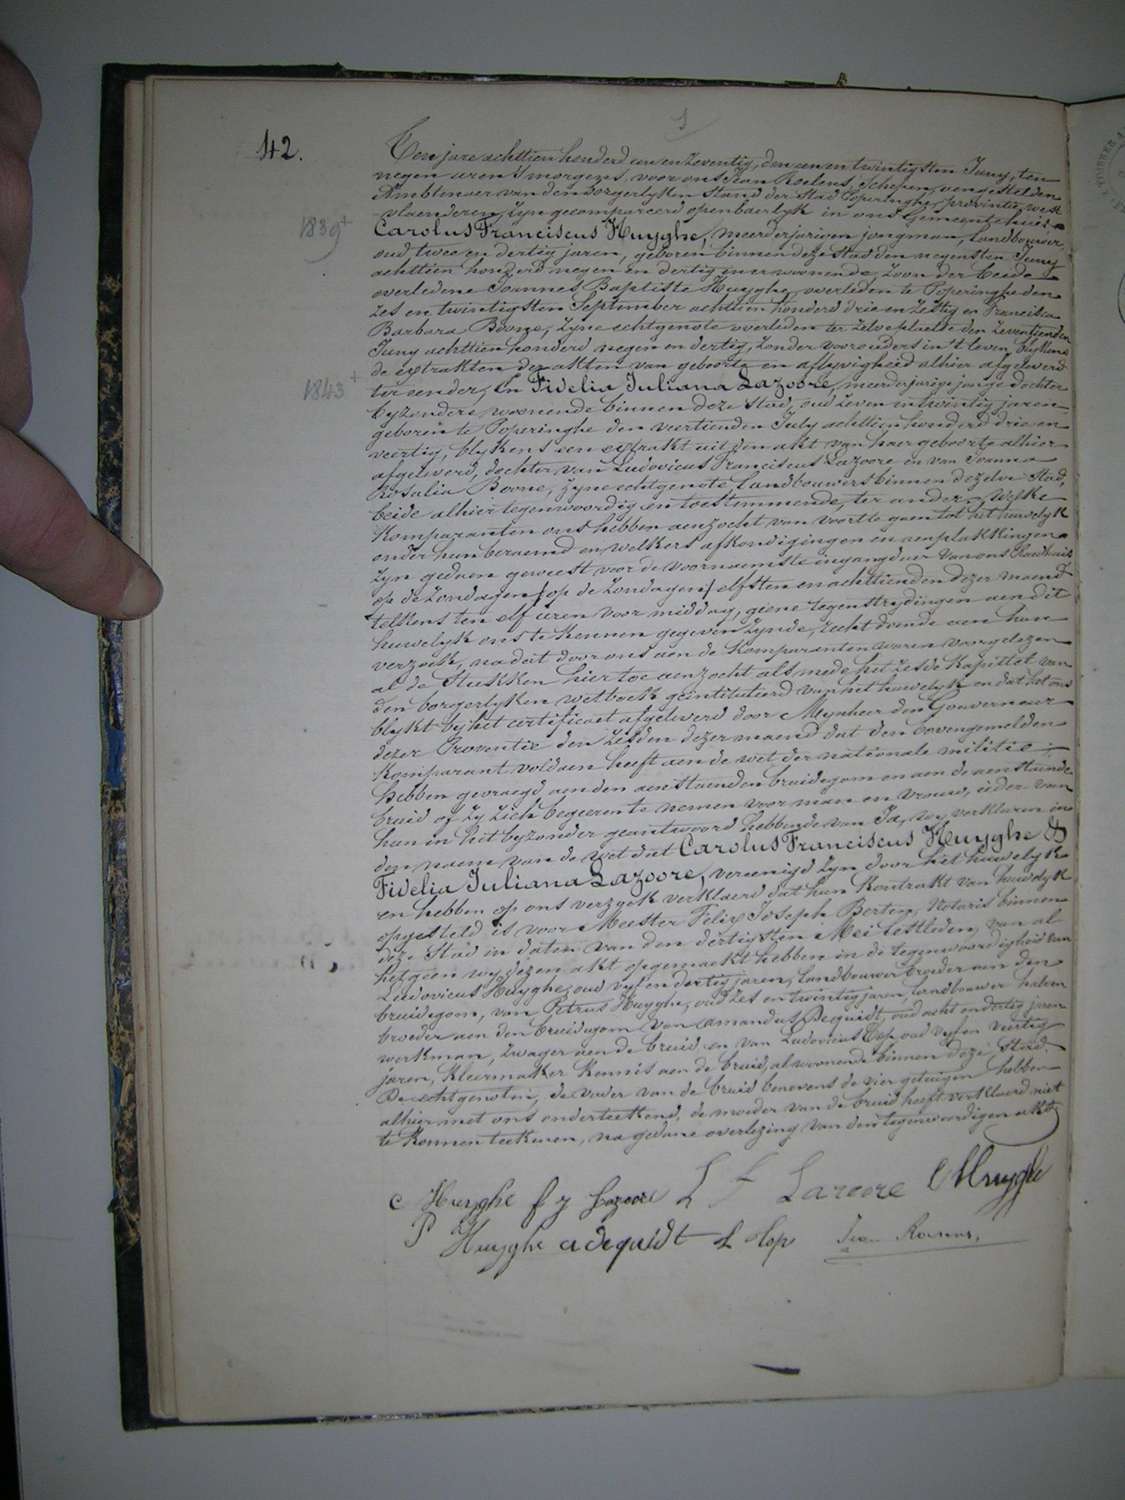 42.
Ten jare achttien honderd een en zeventig, den een en twintigsten Juny, ten
negen uren 's morgens, voor ons Jean Roelens, Schepen,
Amblenaer van den borgerlyken Stand der Stad Poperinghe, provintie West
vlaenderen, zyn gecompareerd openbaerlyk in ons Gemeentehuis
1839+
Carolus Franciscus Huyghe, meerderjarigen jongman, landbouwer
oud twee en dertig jaren, geboren binnen deze Stad den negensten Juny
achttien honderd negen en dertig en er woonende, zoon der beide
overledene Joannes Baptiste Huyghe, overleden te Poperinghe den
zes en twintigsten September achttien honderd drie en zestig en Francisca
Barbara Boone, zyne echtgenote overleden ter zelve plaetse den zeventienden
Juny achttien honderd negen en dertig, zonder voorouders in 't leven, blykens
de extrakten der akten van geboorte en aflyvigheid alhier afgeleverd
1843+
ter eender, En Fidelia Juliana Lazoore, meerderjarige jonge dochter
byzondere, woonende binnen deze Stad, oud zeven en twintig jaren
geboren te Poperinghe den veertienden July achttien honderd drie en
veertig, blykens een extrakt uit den akt van haer geboorte alhier
afgeleverd, dochter van Ludovicus Franciscus Lazoore en van Joanna
Rosalia Boone, zyne echtgenote landbouwers binnen dezelve Stad,
beide alhier tegenwoordig en toestemmende, ter ander, welke
Komparanten ons hebben aenzocht van voort te gaen tot het huwelyk
onder hun beraemd en welkers afkondigingen en aenplakkingen
zyn gedaen geweest voor de voornaemste ingangdeur van ons Raedhuis
op de zondagen / op de zondagen / elfsten en achttienden dezer maend
telkens ten elf uren voor middag, geene tegenstrydingen aen dit
huwelyk ons te kennen gegeven zynde, recht doende aen hun
verzoek, na dat door ons aen de Komparanten waren voorgelezen
al de Stukken hier toe aenzocht als mede het zesde Kapittel van
den borgerlyken wetboek geintituleerd van het huwelyk en dat het ons
blykt by het certificaet afgeleverd door Mynheer den Gouverneur
dezer Proventie den zesden dezer maend dat den bovengemelden
Komparant voldaen heeft aen de wet der nationale militie
hebben gevraegd aen den aenstaenden bruidegom en aen de aenstaende
bruid of zy zich begeeren te nemen voor man en vrouw, ieder van
hun in het byzonder geantwoord hebbende van Ja, wy verklaren in
den naem van de wet dat Carolus Franciscus Huyghe &
Fidelia Juliana Lazoore, vereenigd zyn door het huwelyk
en hebben op ons verzoek verklaerd dat hun Kontrakt van huwelyk
opgesteld is voor Meester Felix Joseph Berten, Notaris binnen
deze Stad in daten van den dertigsten Mei lestleden, van al
hetgeen wy dezen akt opgemaekt hebben in de tegenwoordigheid van
Ludovicus Huyghe, oud vyf en dertig jaren, landbouwer broeder aen den
bruidegom, van Petrus Huyghe, oud zes en twintig jaren, landbouwer halven
broeder aen den bruidegom van Amandus Dequidt, oud acht en dertig jaren
werkman, zwager aen de bruid en van Ludovicus Top oud vyf en veertig
jaren, kleermaker Kennis aen de bruid, al woonende binnen deze Stad.
De echtgenoten, de vader van de bruid benevens de vier getuigen hebben
alhier met ons onderteekend, de moeder van de bruid heeft verklaerd niet
te konnen teekenen, na gedane overlezing van den tegenwoordigen akt
C Huyghe f j Lazoore L f Lazoore L Huyghe
P Huyghe a dequidt L top Jean Roelens,